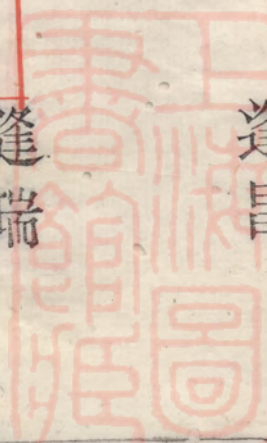 逢昌
上海圖
書館藏
逢瑞